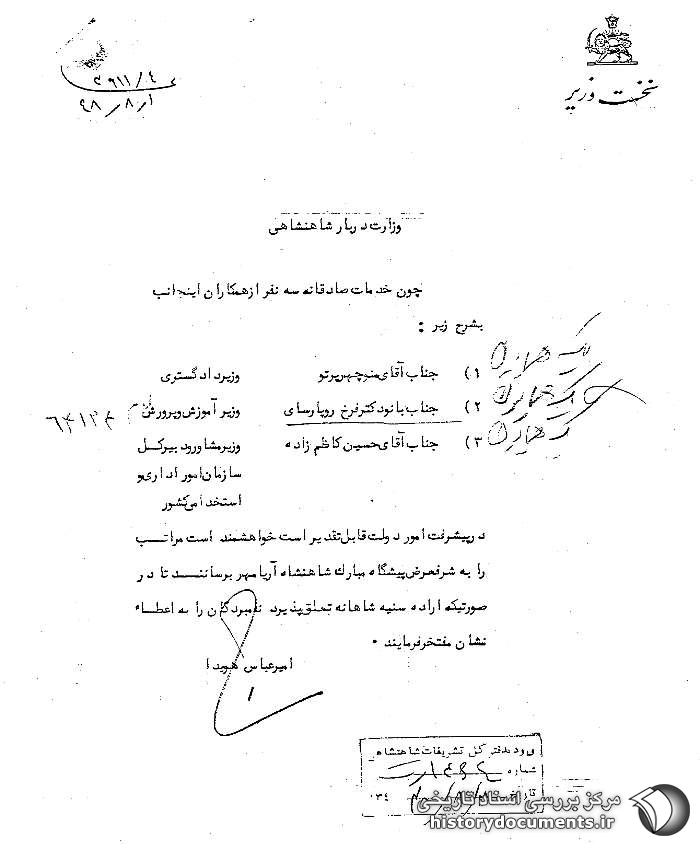 نخست وزیر
۲۹۱۱/۴
۴۸/۸/۱
وزارت دربار شاهنشاهی
چون خدمات صادقانه سه نفر از همکاران اینجانب
بشرح زیر :
۱) جناب آقای منوچهر پرتو وزیر دادگستری
۲) جناب بانو دکتر فرخ روپارسای وزیر آموزش و پرورش
۳) جناب آقای حسین کاظم زاده وزیر مشاور و دبیر کل
سازمان امور اداری و
استخدامی کشور
در پیشرفت امور دولت قابل تقدیر است خواهشمند است مراتب
را به شرفعرض پیشگاه مبارک شاهنشاه آریامهر برسانند تا در
صورتیکه اراده سنیه شاهانه تعلق پذیرد نامبردگان را به اعطاء
نشان مفتخر فرمایند .
امیر عباس هویدا
ورود دفتر کل تشریفات شاهنشاهی
شماره
تاریخ
مرکز بررسی اسناد تاریخی
historydocuments.ir